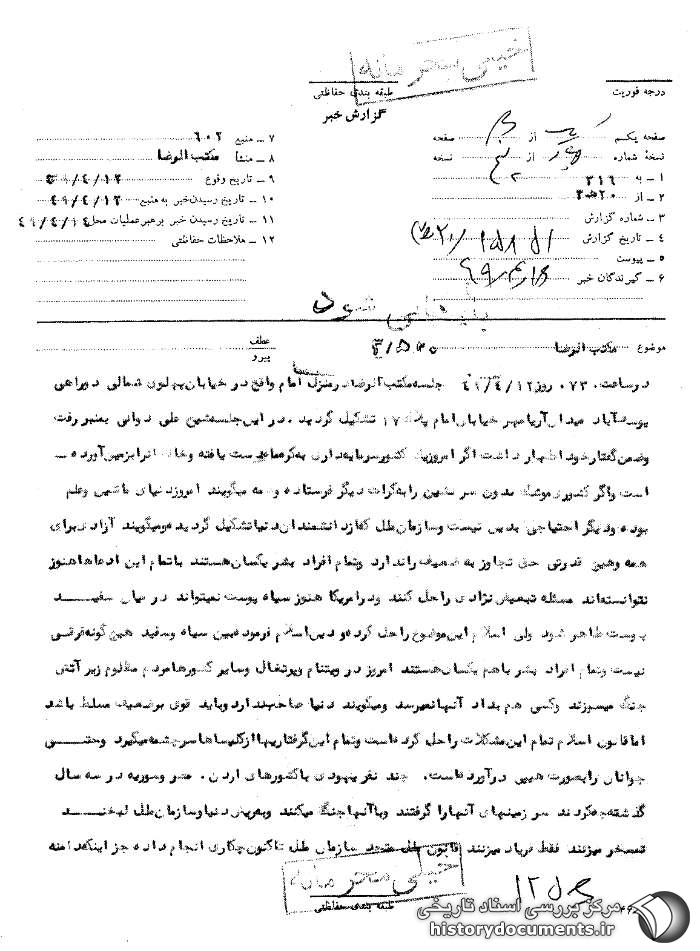 خیلی محرمانه
درجه فوریت
طبقه بندی حفاظتی
گزارش خبر
صفحه یکم از صفحه
نسخه شماره از نسخه
۱ ـ به ۳۱۶
۲ ـ از ۲۰ه۳
۳ ـ شماره گزارش
۴ ـ تاریخ گزارش
۵ ـ پیوست
۶ ـ گیرندگان خبر
۷ ـ منبع ۶۰۲
۸ ـ منشأ مکتب الرضا
۹ ـ تاریخ وقوع ۴۹/۴/۱۲
۱۰ ـ تاریخ رسیدن خبر به منبع ۴۹/۴/۱۲
۱۱ ـ تاریخ رسیدن خبر برهبر عملیات محل ۴۹/۴/۱۴
۱۲ ـ ملاحظات حفاظتی
بایگانی شود
موضوع مکتب الرضا
عطف
پیرو
درساعت ۰۷۳۰ روز ۴۹/۴/۱۲ جلسه مکتب الرضا درمنزل امام واقع در خیابان پهلوی شمالی دوراهی
یوسف آباد میدان آریامهر خیابان امام پلاك ۱۷ تشکیل گردید. در این جلسه شیخ علی دوانی بمنبر رفت
وضمن گفتار خود اظهار داشت اگر امروز یك کشور سرمایه داری به کره ماه دست یافته وخاك آنرا بزمین آورده ـ
است واگر کشوری موشك بدون سرنشین را به کرات دیگر فرستاده وهمه میگویند امروز دنیای ماشین وعلم
بوده ودیگر احتیاجی بدین نیست وسازمان ملل که از دانشمندان دنیا تشکیل گردیده ومیگویند آزادی برای
همه وهیچ قدرتی حق تجاوز به ضعیف را ندارد وتمام افراد بشر یکسان هستند باتمام این ادعاها هنوز
نتوانسته اند مسئله تبعیض نژادی را حل کنند ودر امریکا هنوز سیاه پوست نمیتواند در میان سفید
پوست ظاهر شود ولی اسلام این موضوع را حل کرده و دین اسلام فرموده بین سیاه وسفید هیچ گونه فرقی
نیست وتمام افراد بشر باهم یکسان هستند امروز در ویتنام وپرتغال وسایر کشورها مردم مظلوم زیر آتش
جنگ میسوزند وکسی هم بداد آنها نمیرسد ومیگویند دنیا صاحب ندارد وباید قوی برضعیف مسلط باشد
اما قانون اسلام تمام این مشکلات را حل کرده است وتمام این گرفتاریها از کلیساها سرچشمه میگیرد وحتی
جوانان را بصورت هیپی درآورده است. چند نفر یهودی با کشورهای اردن، مصر وسوریه در سه سال
گذشته چه کردند سرزمینهای آنها را گرفتند وباآنها جنگ میکنند وبه ریش دنیا وسازمان ملل لبخند
تمسخر میزنند فقط فریاد میزنند قانون ملل متحد سازمان ملل تاکنون چکاری انجام داده جز اینکه دامنه
خیلی محرمانه
طبقه بندی حفاظتی
مرکز بررسی اسناد تاریخی
historydocuments.ir